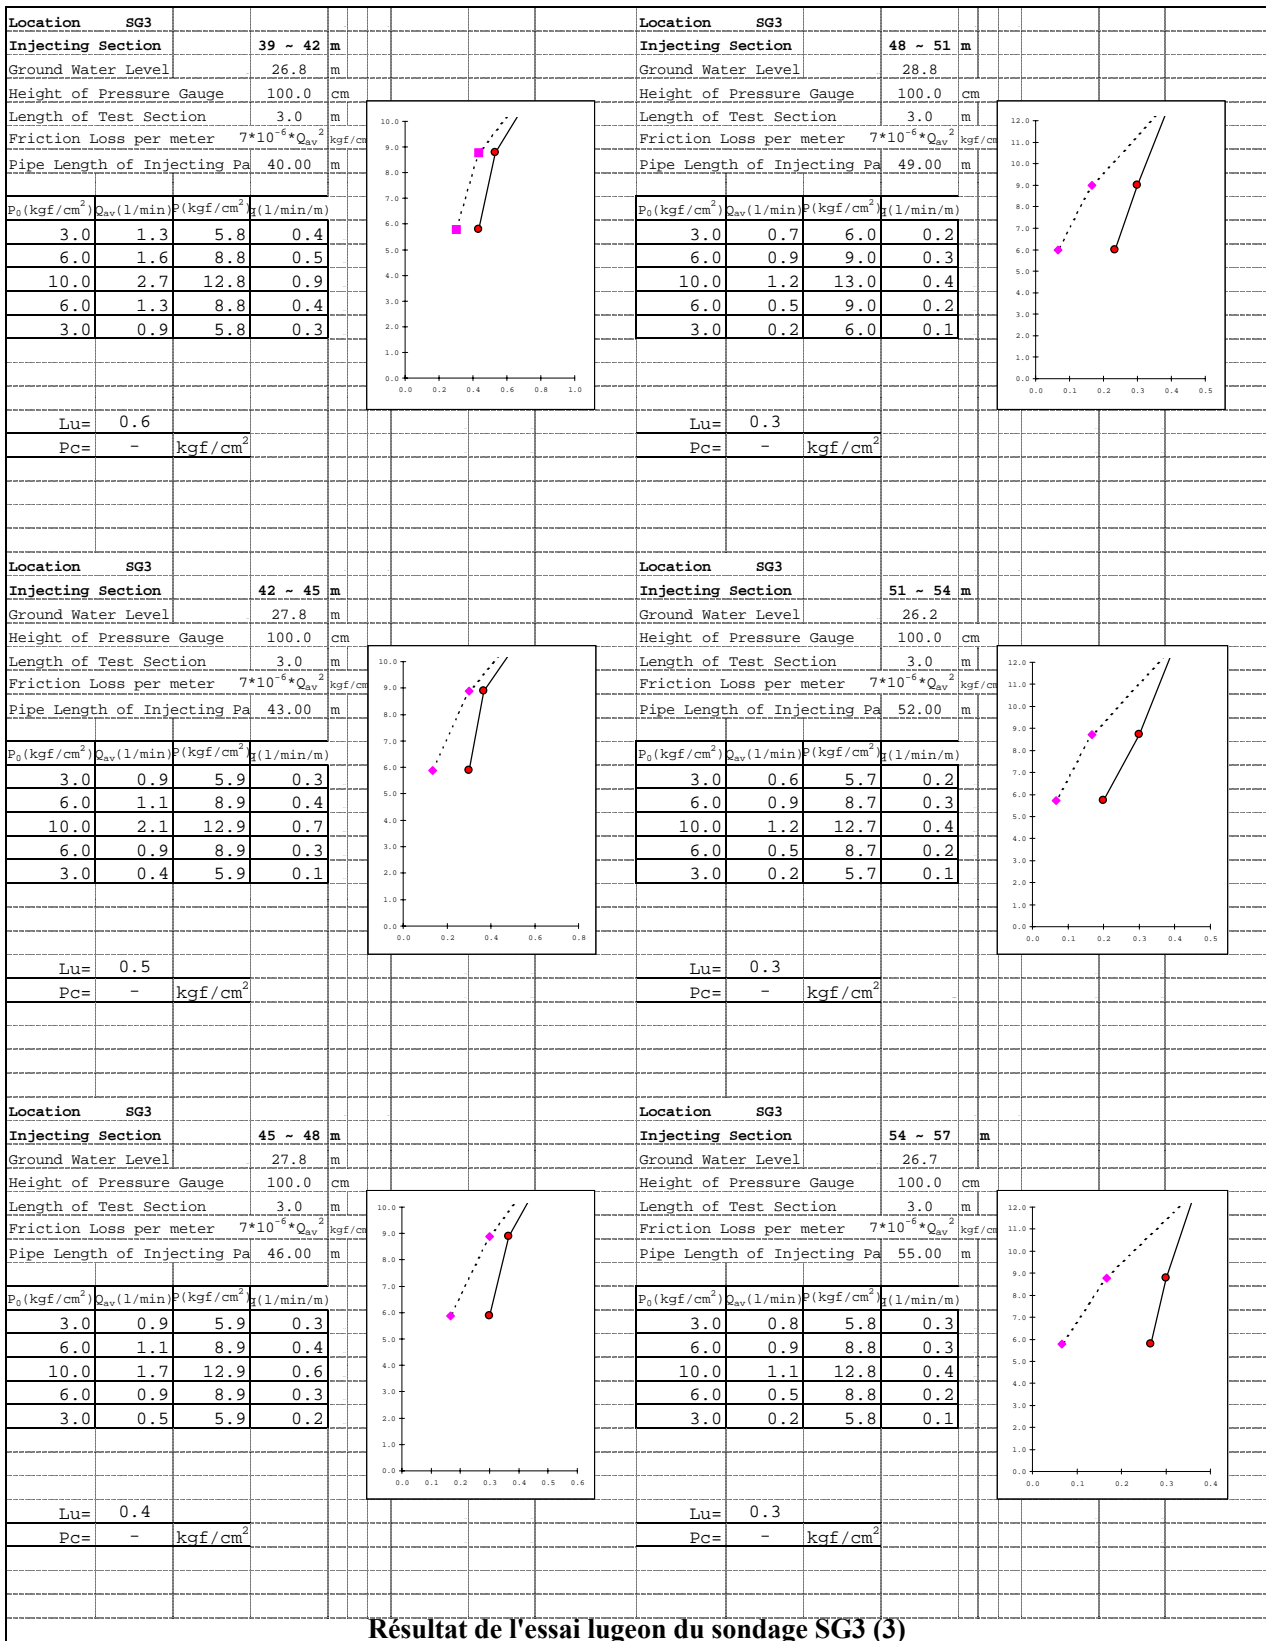 Location SG3
Injecting Section 39 ~ 42 m
Ground Water Level 26.8 m
Height of Pressure Gauge 100.0 cm
Length of Test Section 3.0 m
Friction Loss per meter 7*10⁻⁶*Qav² kgf/cm
Pipe Length of Injecting Pa 40.00 m
P₀(kgf/cm²) Qav(l/min) P(kgf/cm²) q(l/min/m)
3.0 1.3 5.8 0.4
6.0 1.6 8.8 0.5
10.0 2.7 12.8 0.9
6.0 1.3 8.8 0.4
3.0 0.9 5.8 0.3
Lu= 0.6
Pc= - kgf/cm²
10.0
9.0
8.0
7.0
6.0
5.0
4.0
3.0
2.0
1.0
0.0
0.0 0.2 0.4 0.6 0.8 1.0
Location SG3
Injecting Section 48 ~ 51 m
Ground Water Level 28.8
Height of Pressure Gauge 100.0 cm
Length of Test Section 3.0 m
Friction Loss per meter 7*10⁻⁶*Qav² kgf/cm
Pipe Length of Injecting Pa 49.00 m
P₀(kgf/cm²) Qav(l/min) P(kgf/cm²) q(l/min/m)
3.0 0.7 6.0 0.2
6.0 0.9 9.0 0.3
10.0 1.2 13.0 0.4
6.0 0.5 9.0 0.2
3.0 0.2 6.0 0.1
Lu= 0.3
Pc= - kgf/cm²
12.0
11.0
10.0
9.0
8.0
7.0
6.0
5.0
4.0
3.0
2.0
1.0
0.0
0.0 0.1 0.2 0.3 0.4 0.5
Location SG3
Injecting Section 42 ~ 45 m
Ground Water Level 27.8 m
Height of Pressure Gauge 100.0 cm
Length of Test Section 3.0 m
Friction Loss per meter 7*10⁻⁶*Qav² kgf/cm
Pipe Length of Injecting Pa 43.00 m
P₀(kgf/cm²) Qav(l/min) P(kgf/cm²) q(l/min/m)
3.0 0.9 5.9 0.3
6.0 1.1 8.9 0.4
10.0 2.1 12.9 0.7
6.0 0.9 8.9 0.3
3.0 0.4 5.9 0.1
Lu= 0.5
Pc= - kgf/cm²
10.0
9.0
8.0
7.0
6.0
5.0
4.0
3.0
2.0
1.0
0.0
0.0 0.2 0.4 0.6 0.8
Location SG3
Injecting Section 51 ~ 54 m
Ground Water Level 26.2
Height of Pressure Gauge 100.0 cm
Length of Test Section 3.0 m
Friction Loss per meter 7*10⁻⁶*Qav² kgf/cm
Pipe Length of Injecting Pa 52.00 m
P₀(kgf/cm²) Qav(l/min) P(kgf/cm²) q(l/min/m)
3.0 0.6 5.7 0.2
6.0 0.9 8.7 0.3
10.0 1.2 12.7 0.4
6.0 0.5 8.7 0.2
3.0 0.2 5.7 0.1
Lu= 0.3
Pc= - kgf/cm²
12.0
11.0
10.0
9.0
8.0
7.0
6.0
5.0
4.0
3.0
2.0
1.0
0.0
0.0 0.1 0.2 0.3 0.4 0.5
Location SG3
Injecting Section 45 ~ 48 m
Ground Water Level 27.8 m
Height of Pressure Gauge 100.0 cm
Length of Test Section 3.0 m
Friction Loss per meter 7*10⁻⁶*Qav² kgf/cm
Pipe Length of Injecting Pa 46.00 m
P₀(kgf/cm²) Qav(l/min) P(kgf/cm²) q(l/min/m)
3.0 0.9 5.9 0.3
6.0 1.1 8.9 0.4
10.0 1.7 12.9 0.6
6.0 0.9 8.9 0.3
3.0 0.5 5.9 0.2
Lu= 0.4
Pc= - kgf/cm²
10.0
9.0
8.0
7.0
6.0
5.0
4.0
3.0
2.0
1.0
0.0
0.0 0.1 0.2 0.3 0.4 0.5 0.6
Location SG3
Injecting Section 54 ~ 57 m
Ground Water Level 26.7
Height of Pressure Gauge 100.0 cm
Length of Test Section 3.0 m
Friction Loss per meter 7*10⁻⁶*Qav² kgf/cm
Pipe Length of Injecting Pa 55.00 m
P₀(kgf/cm²) Qav(l/min) P(kgf/cm²) q(l/min/m)
3.0 0.8 5.8 0.3
6.0 0.9 8.8 0.3
10.0 1.1 12.8 0.4
6.0 0.5 8.8 0.2
3.0 0.2 5.8 0.1
Lu= 0.3
Pc= - kgf/cm²
12.0
11.0
10.0
9.0
8.0
7.0
6.0
5.0
4.0
3.0
2.0
1.0
0.0
0.0 0.1 0.2 0.3 0.4
Résultat de l'essai lugeon du sondage SG3 (3)